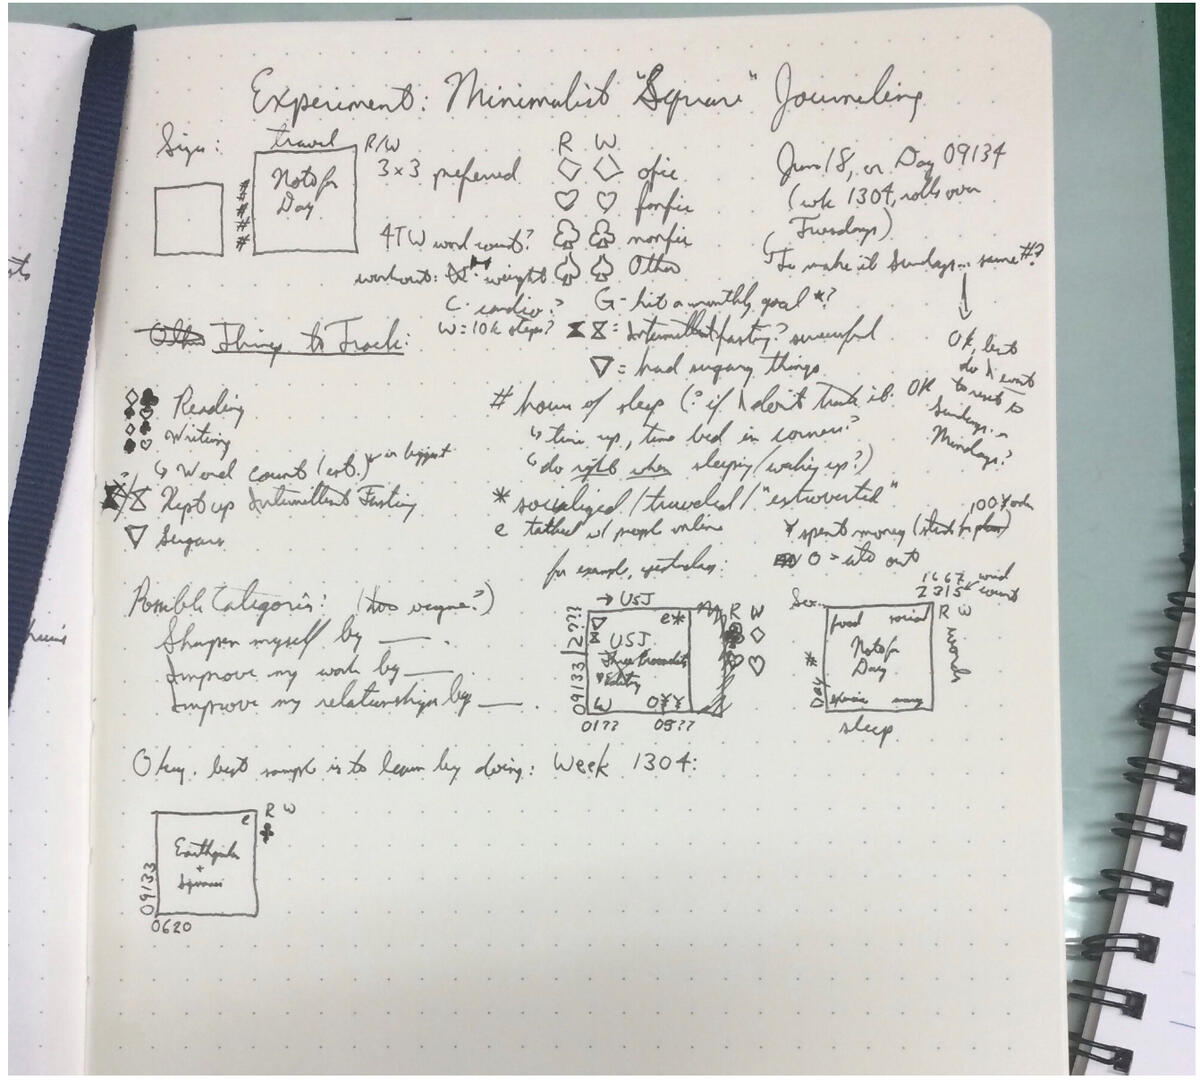 Experiment: Minimalist "Square" Journaling
Sign:
travel
R/W
#
#
#
#
#
Note for
Day
3x3 preferred
4TW word count?
workout: weight
C - cardio?
W = 10k steps?
R W
◇ ◇ ofic
♡ ♡ fanfic
♧ ♧ nonfic
♤ ♤ Other
G - hit a monthly goal *?
⧗ ⧖ = Intermittent fasting? successful
▽ = had sugary things
Jun 18, or Day 09134
(wk 1304, rolls over
Tuesdays)
(To make it Sundays... same #?
OK, but
do I want
to reset to
Sundays or
Mondays?
Things to Track:
Reading
Writing
↳ Word count (est.) in biggest
⧗/⧖ Kept up Intermittent Fasting
▽ Sugars
# hours of sleep (? if I don't track it. OK
↳ time up, time bed in corners?
↳ do right when sleeping/waking up?)
* socialized/traveled/"extroverted"
e talked w/ people online
¥ spent money
O = ate out
Possible Categories: (too vague?)
Sharpen myself by ___.
Improve my work by ___
Improve my relationships by ___.
for example, yesterday:
→ USJ
09133 | 2???
e*
▽
⧖
USJ
Editing
W O¥¥
01?? 05??
R W
♡ ♡
1667 word
2315 count
R W
words
food social
Note for
Day
*
Day
money
sleep
Okay, best sample is to learn by doing: Week 1304:
R W
e
♣
Earthquake
+
Squares
09133
0620